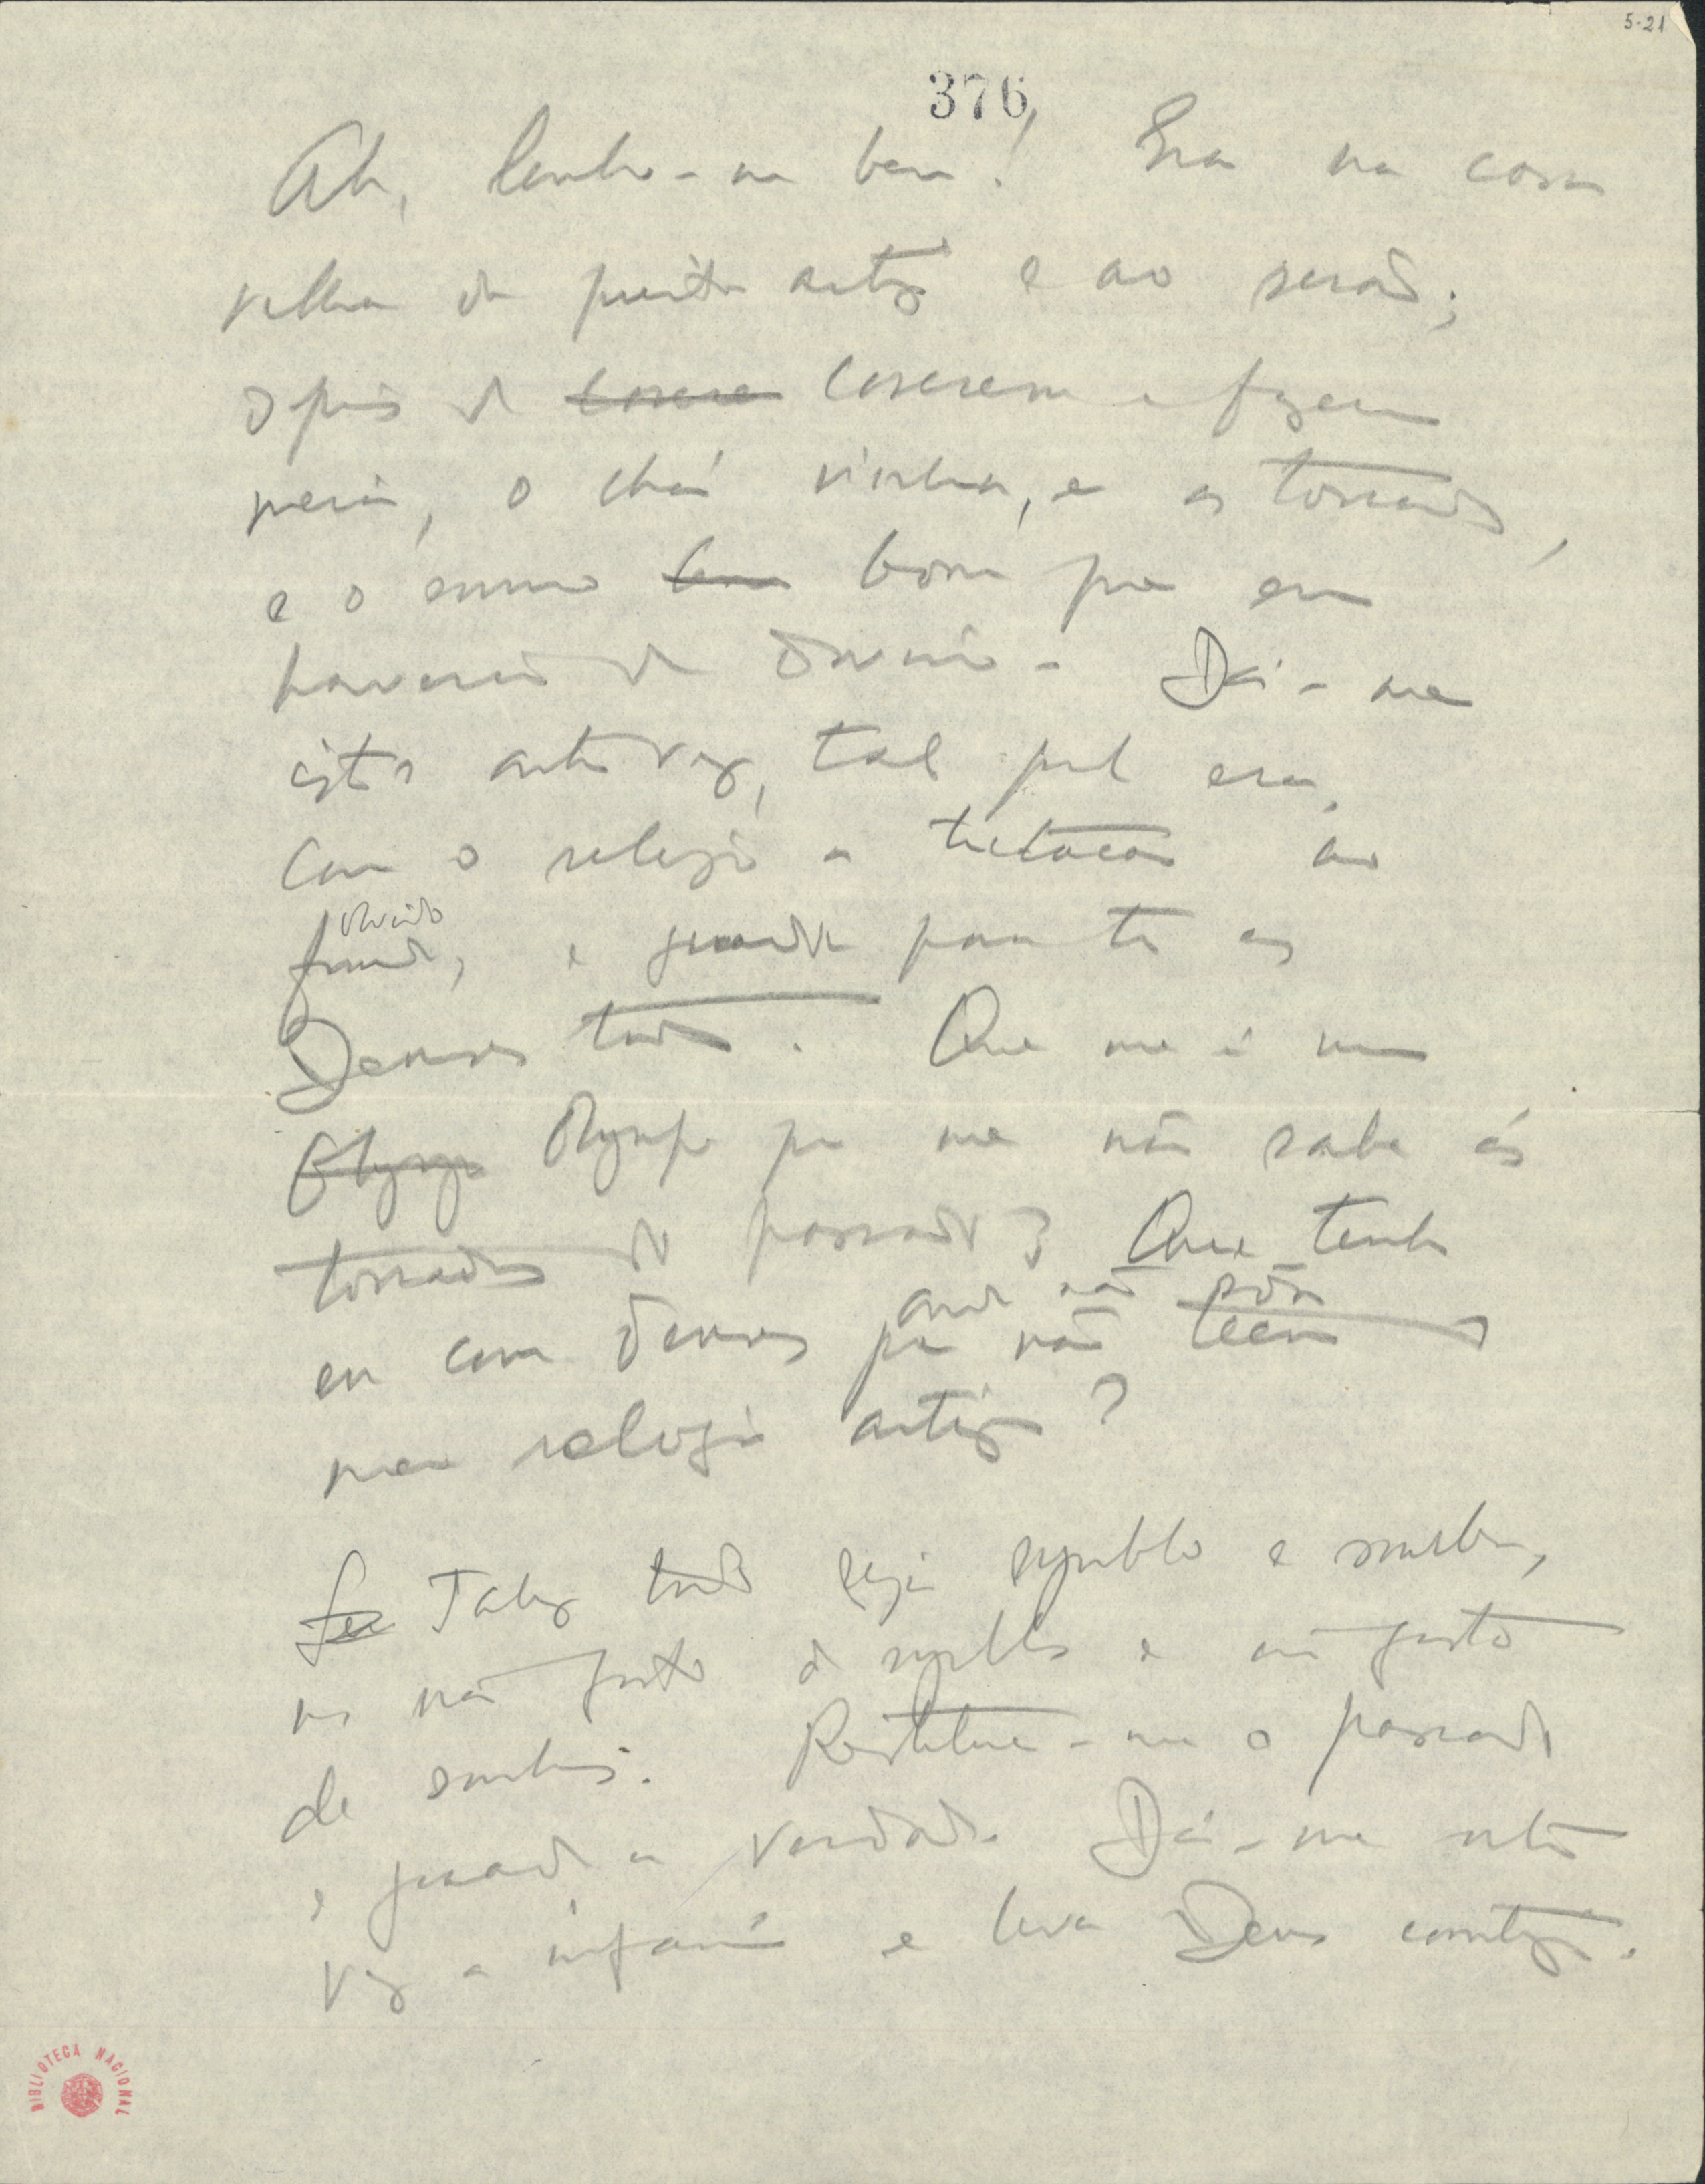 5-21
376
Ah, lembro-me bem! Era na casa
velha da quinta antiga e ao serão;
depois de coserem e fazerem
meia, o chá vinha, e as torradas,
e o somno bom que eu
haveria de dormir. Dá-me
isto outra vez, tal qual era,
com o relogio a tictacar ao
olvido
fundo, e guarda para ti os
Deuses todos. Que me é um
Olympo Olympo que me não sabe ás
torradas do passado? Que tenho
onde não são
eu com deuses que não teem o
meu relogio antigo?
Talvez tudo seja symbolo e sombra,
mas não gosto de symbolos e não gosto
de sombras. Restitue-me o passado
e guarda a verdade. Dá-me outra
vez a infancia e leva Deus comtigo.
BIBLIOTECA NACIONAL